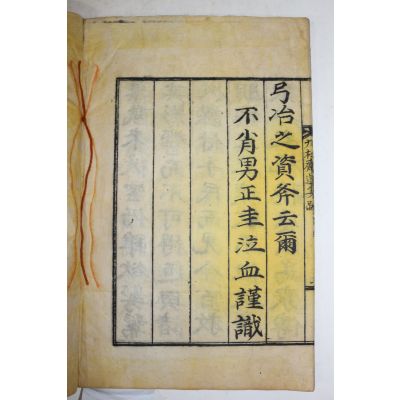 弓冶之資斧云爾
不肖男正圭泣血謹識